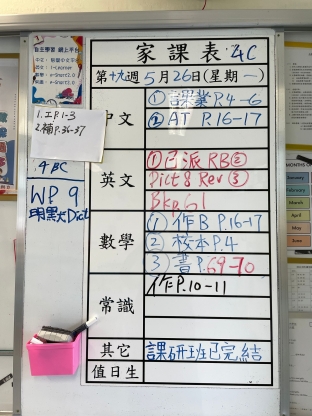 自主學習 網上平台
家課表 4C
第十九週 5月26日(星期一)
1. 工P.1-3
2. 補P.36-37
4BC
WP 9
明默大Dict
中文
① 課業P.4-6
② AT P.16-17
英文
① 已派 RB②
Dict 8 Rev ③
Bkp.61
數學
① 作B P.16-17
② 校本P.4
3) 書P.69-70
常識
作P.10-11
其它
課研班已完結
值日生
MONTHS OF
January
February
March
April
May
June